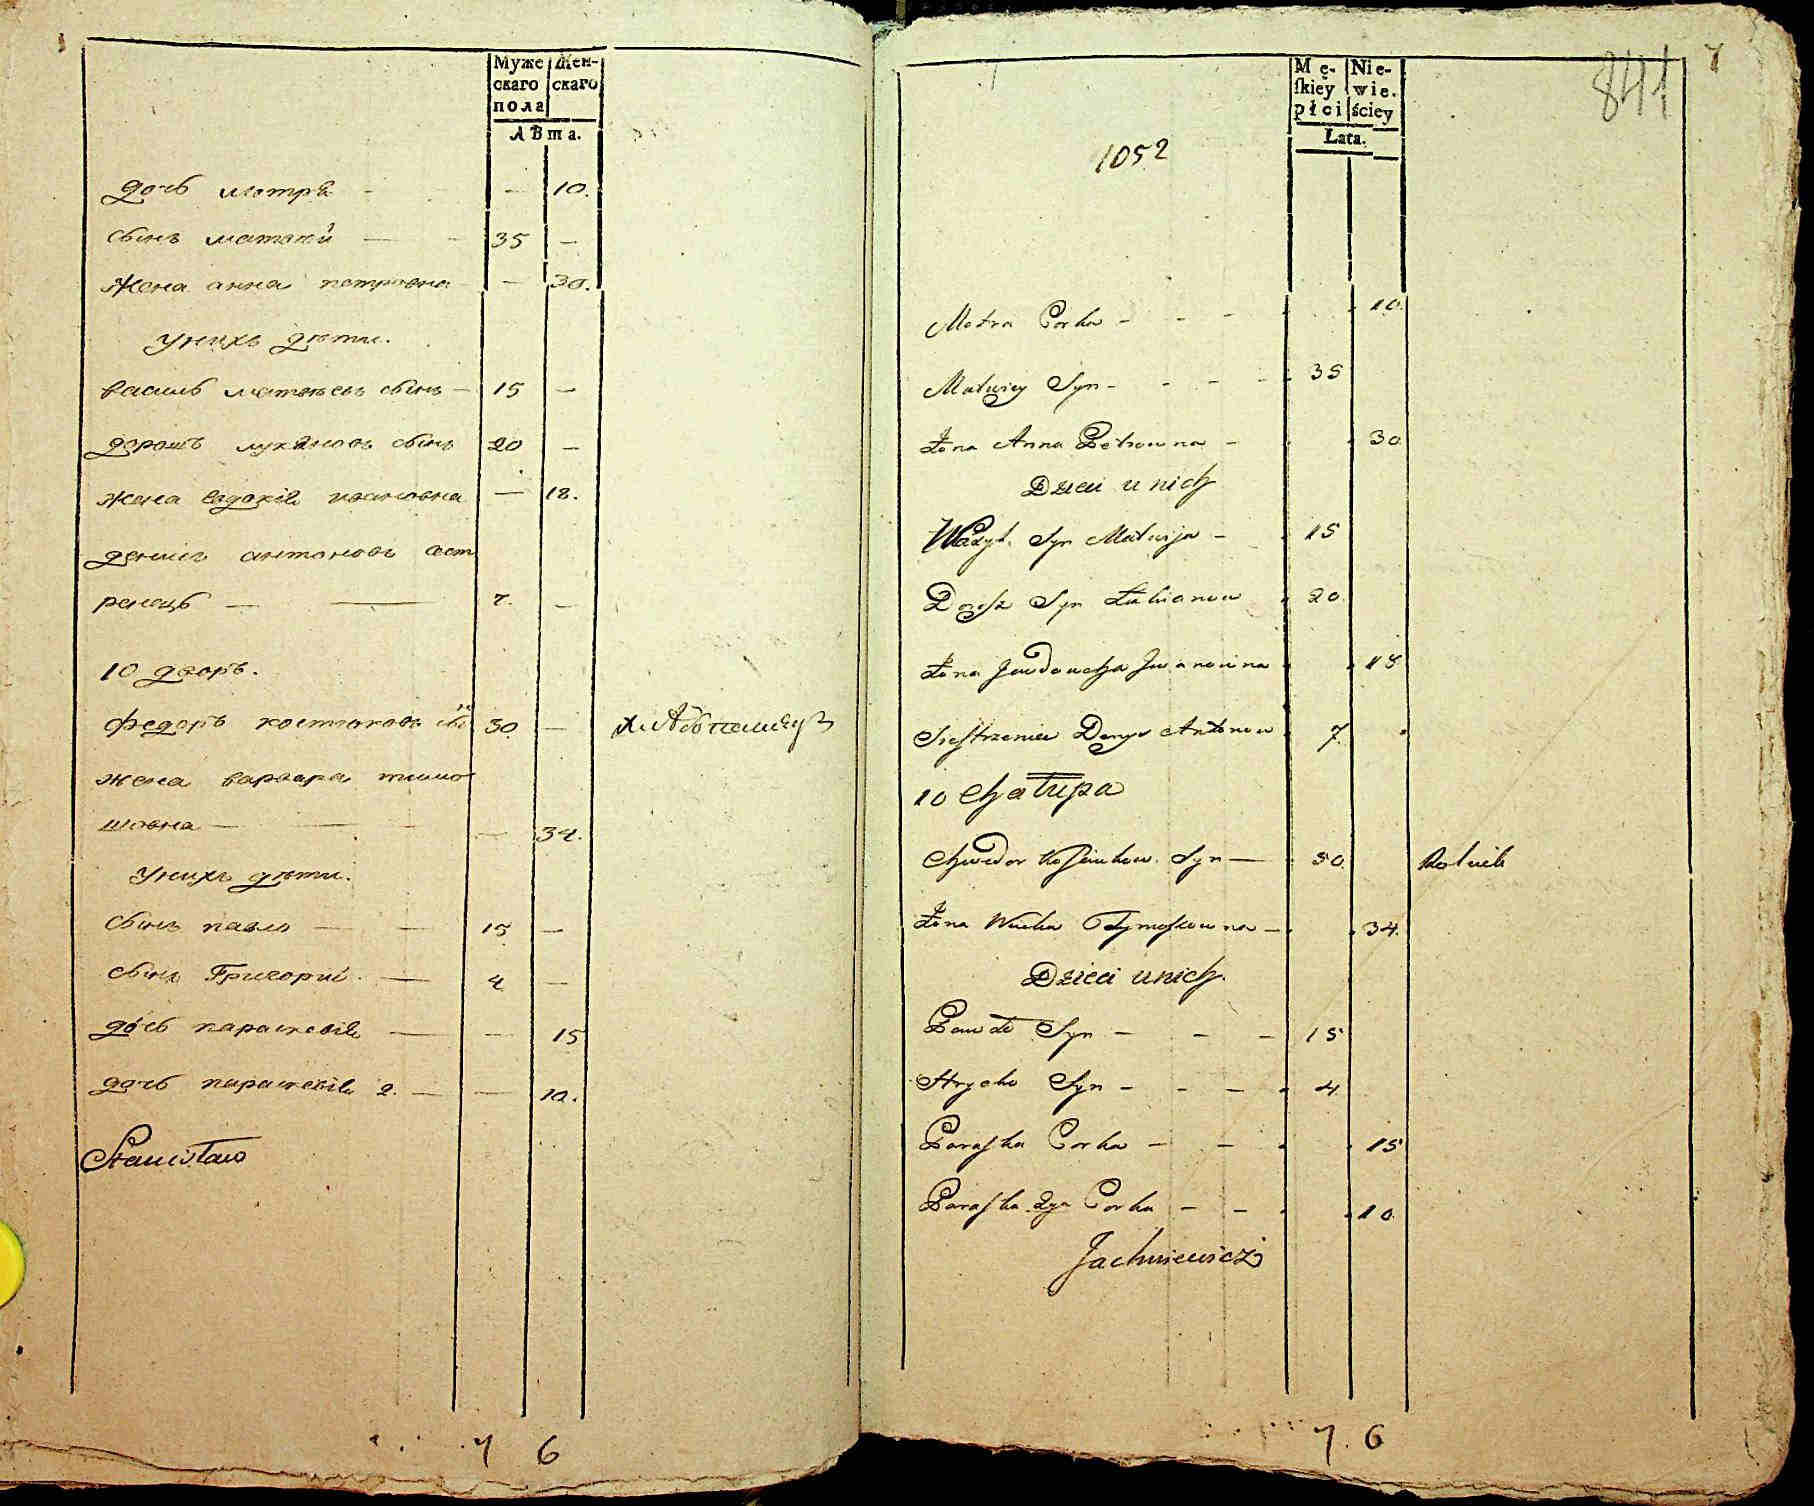 Муже Жен-
скаго скаго
пола
лѣта.
дочь мотря - - 10.
сынъ матвѣй — 35 —
жена анна петровна — 30.
унихъ дѣти.
василь матвѣевъ сынъ — 15 —
дорошъ лукяновъ сынъ 20 —
жена евдокія ивановна — 18.
денисъ антоновъ сест
ренецъ — 7. —
10 дворъ.
федоръ костюковъ сы 30 —
жена варвара тимо
шовна — — 34.
унихъ дѣти.
сынъ павло — 15 —
сынъ Григорий — 4 —
дочь параскевія — — 15
дочь параскевія 2. — — 10.
Stanisław
7 6
841
7
Mę- Nie-
ſkiey wie.
płci ściey
Lata.
1052
Motra Corka - - - 10.
Matwiey Syn - - - 35
Żona Anna Petrowna - 30
Dzieci u nich
Wasyl Syn Matwija - 15
Dorosz Syn Łukianow 20
Żona Jewdowcha Iwanowna 18
Siestrzeniec Denys Antonow 7
10 Chałupa
Chwedor Kostiukow Syn — 30 Rolnik
Żona Tymoszowna — 34.
Dzieci u nich.
Pawło Syn - - - 15
Hryćko Syn - - - 4
Paraska Corka - - 15
Paraska 2ga Corka - - 10
Jachniewicz
7. 6